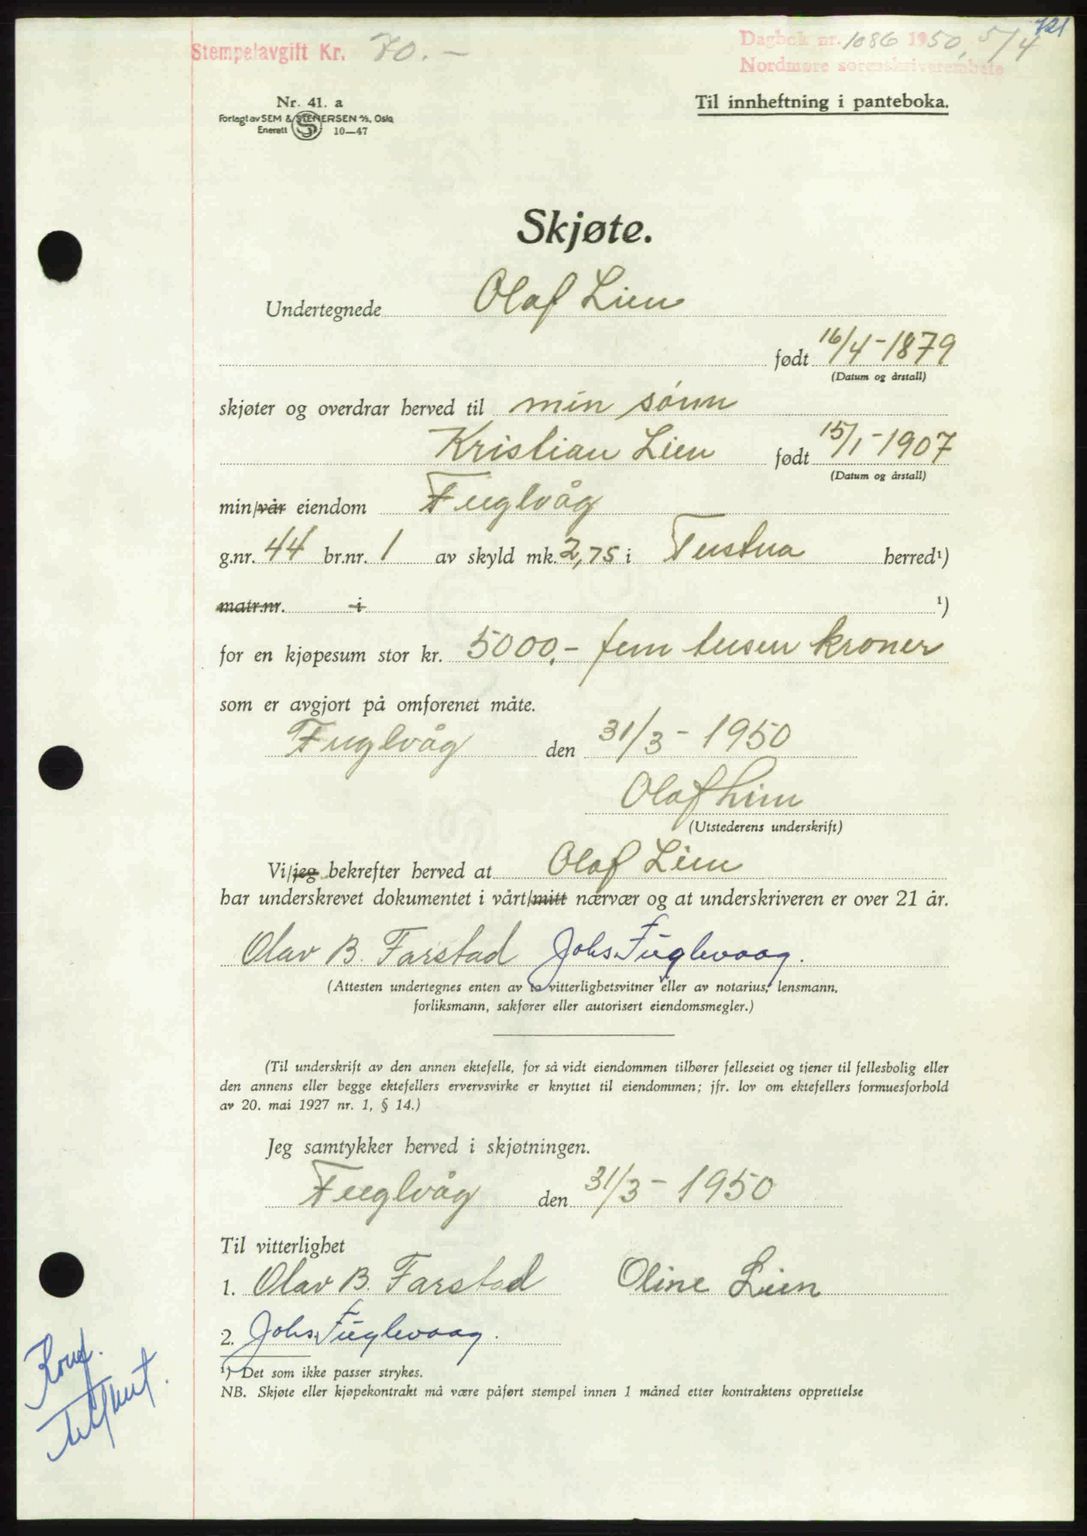 721
Stempelavgift Kr. 70.-
Dagbok nr. 1086 1950, 5/4
Nordmøre sorenskriverembete
Nr. 41. a
Forlagt av SEM & STENERSEN A/S, Oslo
Enerett S 10—47
Til innheftning i panteboka.
Skjøte.
Undertegnede Olaf Lien
født 16/4-1879
(Datum og årstall)
skjøter og overdrar herved til min sønn
Kristian Lien født 15/1-1907
(Datum og årstall)
min/vår eiendom Fuglvåg
g.nr. 44 br.nr. 1 av skyld mk. 2,75 i Tustna herred¹)
matr.nr. i ¹)
for en kjøpesum stor kr. 5000,- fem tusen kroner
som er avgjort på omforenet måte.
Fuglvåg den 31/3-1950
Olaf Lien
(Utstederens underskrift)
Vi/jeg bekrefter herved at Olaf Lien
har underskrevet dokumentet i vårt/mitt nærvær og at underskriveren er over 21 år.
Olav B. Farstad Johs. Fuglevaag.
(Attesten undertegnes enten av to vitterlighetsvitner eller av notarius, lensmann,
forliksmann, sakfører eller autorisert eiendomsmegler.)
(Til underskrift av den annen ektefelle, for så vidt eiendommen tilhører felleseiet og tjener til fellesbolig eller
den annens eller begge ektefellers ervervsvirke er knyttet til eiendommen; jfr. lov om ektefellers formuesforhold
av 20. mai 1927 nr. 1, § 14.)
Jeg samtykker herved i skjøtningen.
Fuglvåg den 31/3-1950
Til vitterlighet
1. Olav B. Farstad Oline Lien
2. Johs. Fuglevaag.
¹) Det som ikke passer strykes.
NB. Skjøte eller kjøpekontrakt må være påført stempel innen 1 måned etter kontraktens opprettelse